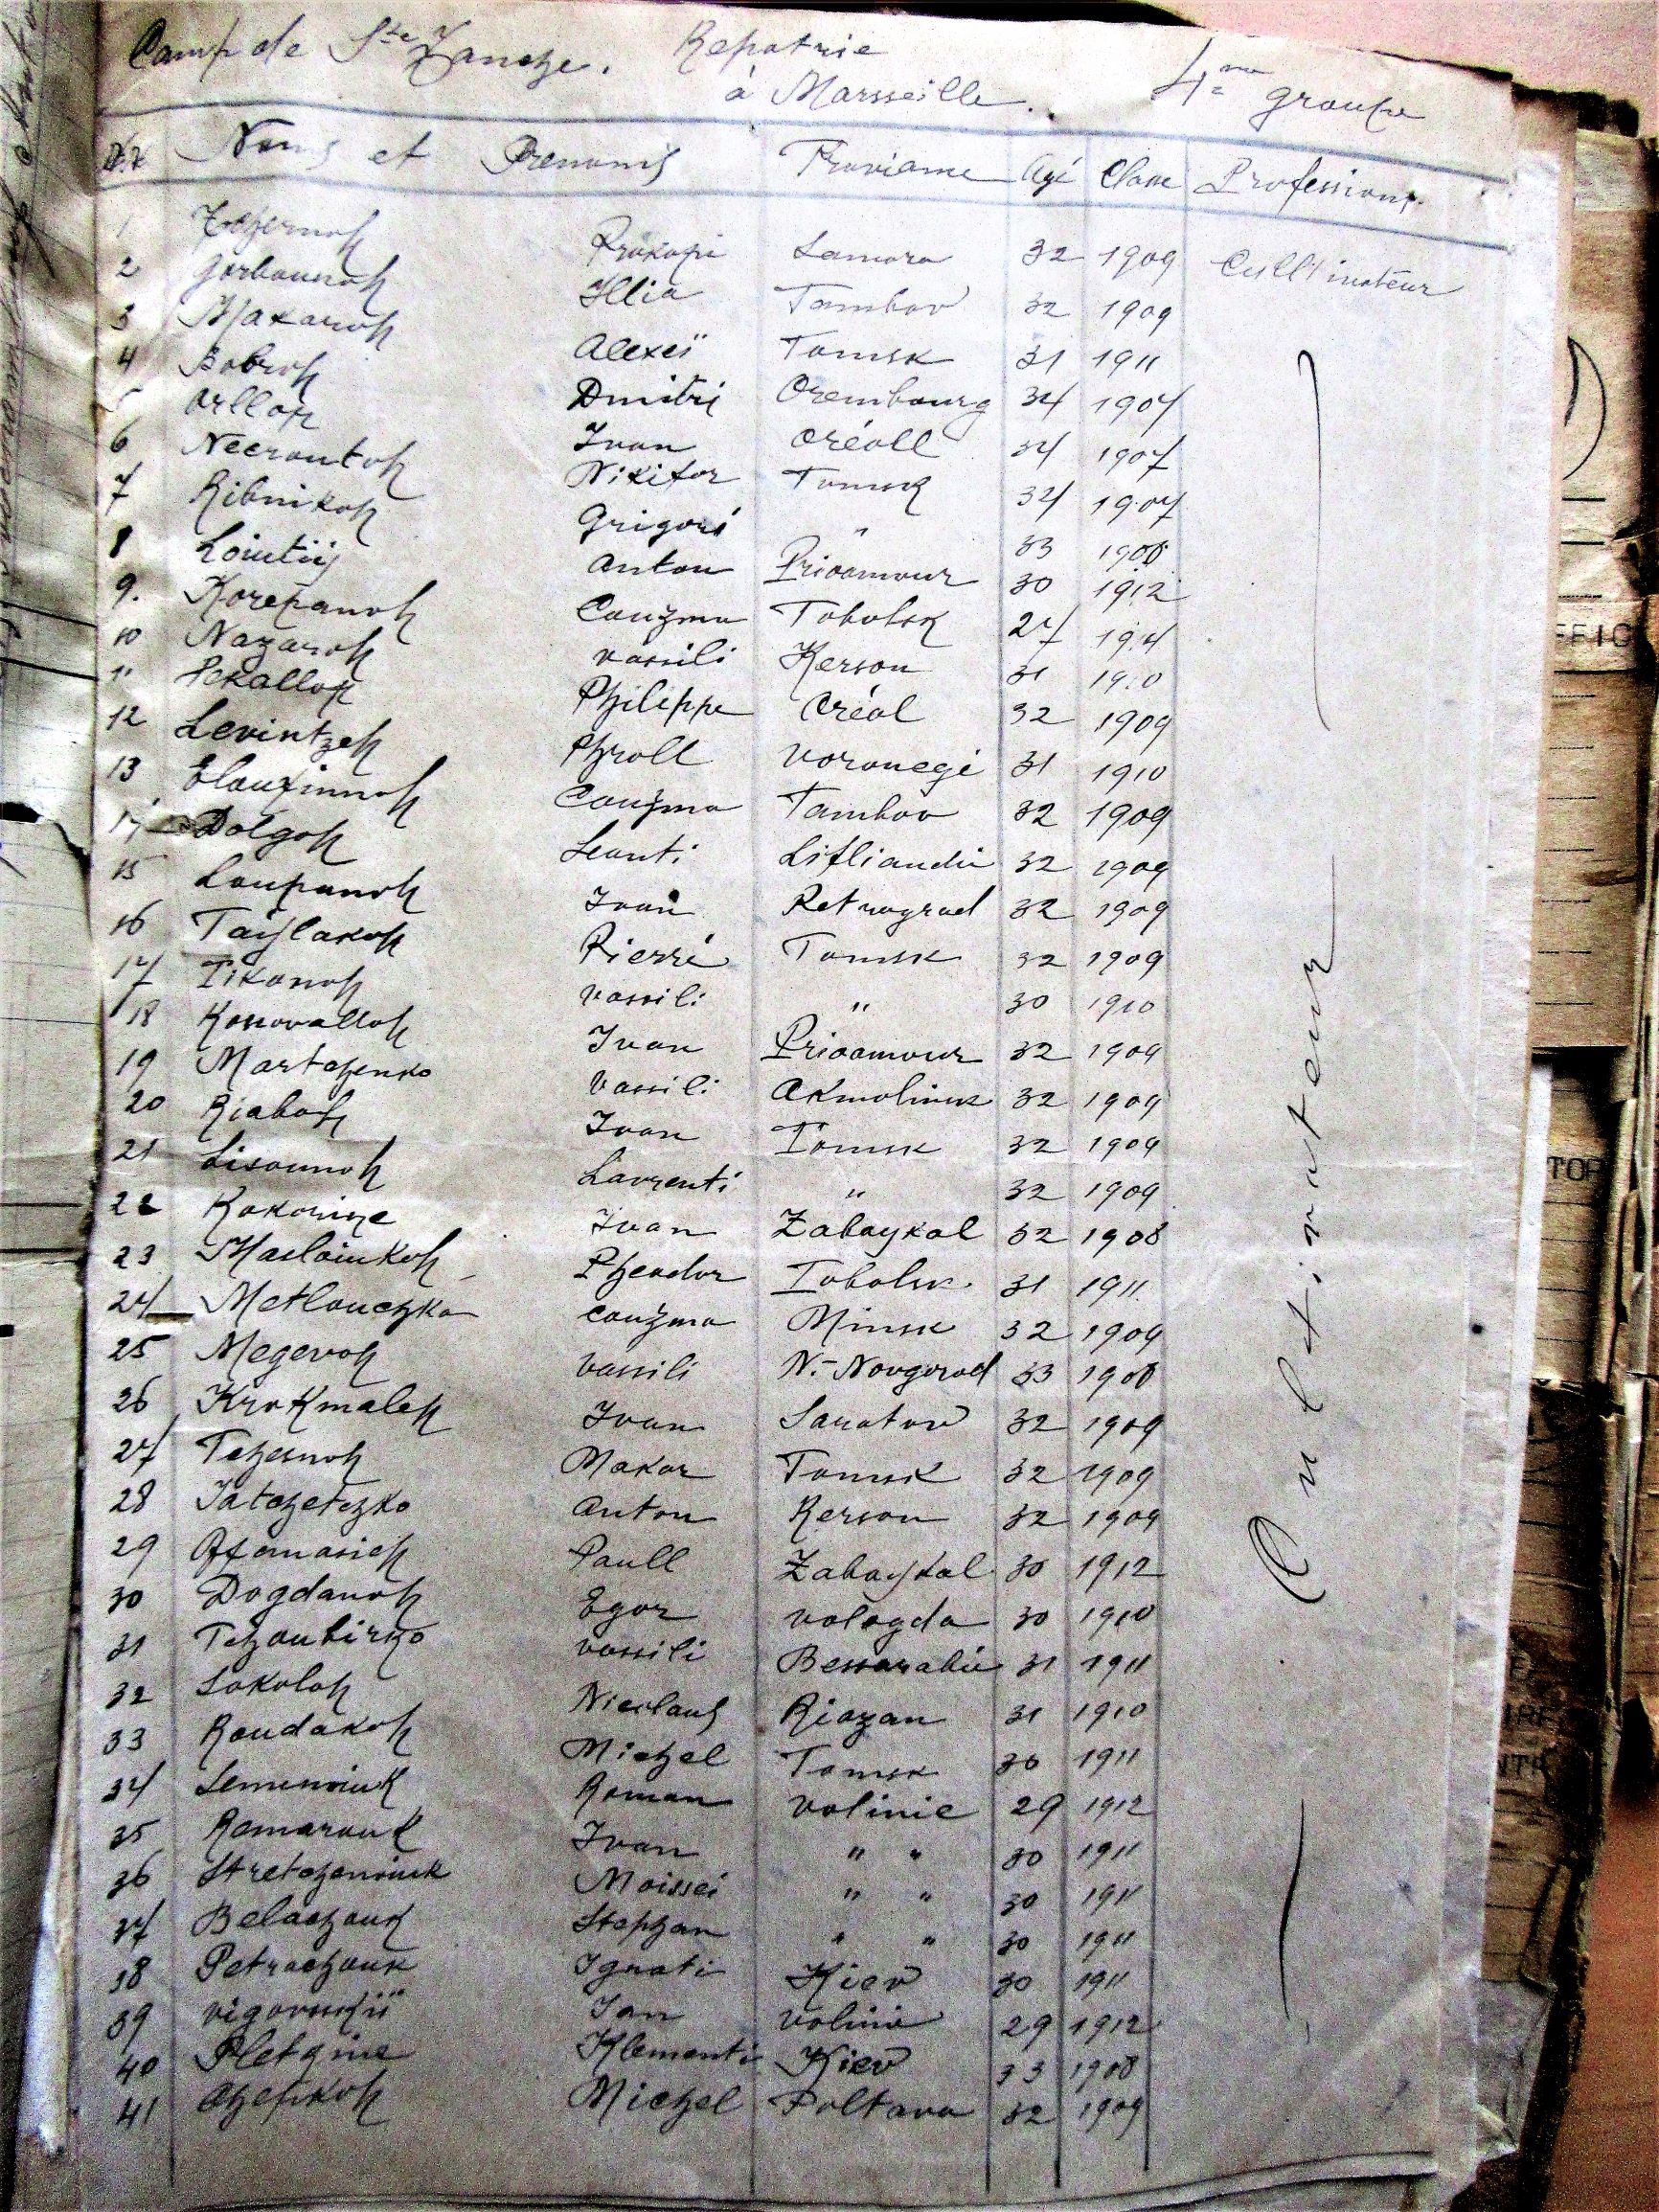 Camp de Ste Zanche. Repatrie
à Marsseille. 4me groupe
Noms et Prenoms Proviance Agé Classe Professions
1 Tchernoff Prokopi Samara 32 1909 Cultivateur
2 Gorbounoff Illia Tambov 32 1909
3 Makaroff Alexeï Tomsk 31 1911
4 Bobroff Dmitri Orembourg 34 1907
5 Orlloff Ivan Oréoll 34 1907
6 Necroutoff Nikifor Tomsk 34 1907
7 Ribnikoff Grigori " 33 1908
8 Anton Prioamour 30 1912
9. Korepanoff Couzma Tobolsk 27 1914
10 Nazaroff Vassili Kerson 31 1910
11 Sckalloff Philippe Oréol 32 1909
12 Levintzeff Phroll Voronegé 31 1910
13 Elouzinnoff Couzma Tambov 32 1909
14 Dolgoff Leonti Lifliandie 32 1909
15 Loupanoff Ivan Petrograd 32 1909
16 Taylakoff Pierré Tomsk 32 1909
17 Tikonoff Vassili " 30 1910
18 Konovalloff Ivan Prioamour 32 1909
19 Martchenko Vassili Akmolinsk 32 1909
20 Riaboff Ivan Tomsk 32 1909
21 Lisounoff Lavrenti " 32 1909
22 Kokorine Ivan Zabaykal 32 1908
23 Masloiukoff Pheodor Tobolsk 31 1911
24 Metlouchko Couzma Minsk 32 1909
25 Megevoff Vassili N.-Novgorod 33 1908
26 Krokmaleff Ivan Saratov 32 1909
27 Tchesnoff Makar Tomsk 32 1909
28 Tatchetchko Anton Kerson 32 1909
29 Afanasieff Paull Zabaykal 30 1912
30 Bogdanoff Egor Vologda 30 1910
31 Tchoubirko Vassili Bessarabie 31 1911
32 Sokoloff Nicolaus Riazan 31 1910
33 Roudakoff Michel Tomsk 30 1911
34 Semenoiuk Roman Volinie 29 1912
35 Romarouk Ivan " " 30 1911
36 Stretchenoiuk Moissei " " 30 1911
37 Belachouk Stephan " " 30 1911
38 Petrachouk Ignati Kiev 30 1911
39 Vigovsskii Jan Volinie 29 1912
40 Pletgine Klementi Kiev 33 1908
41 Chepkoff Michel Poltava 32 1909
Cultivateur